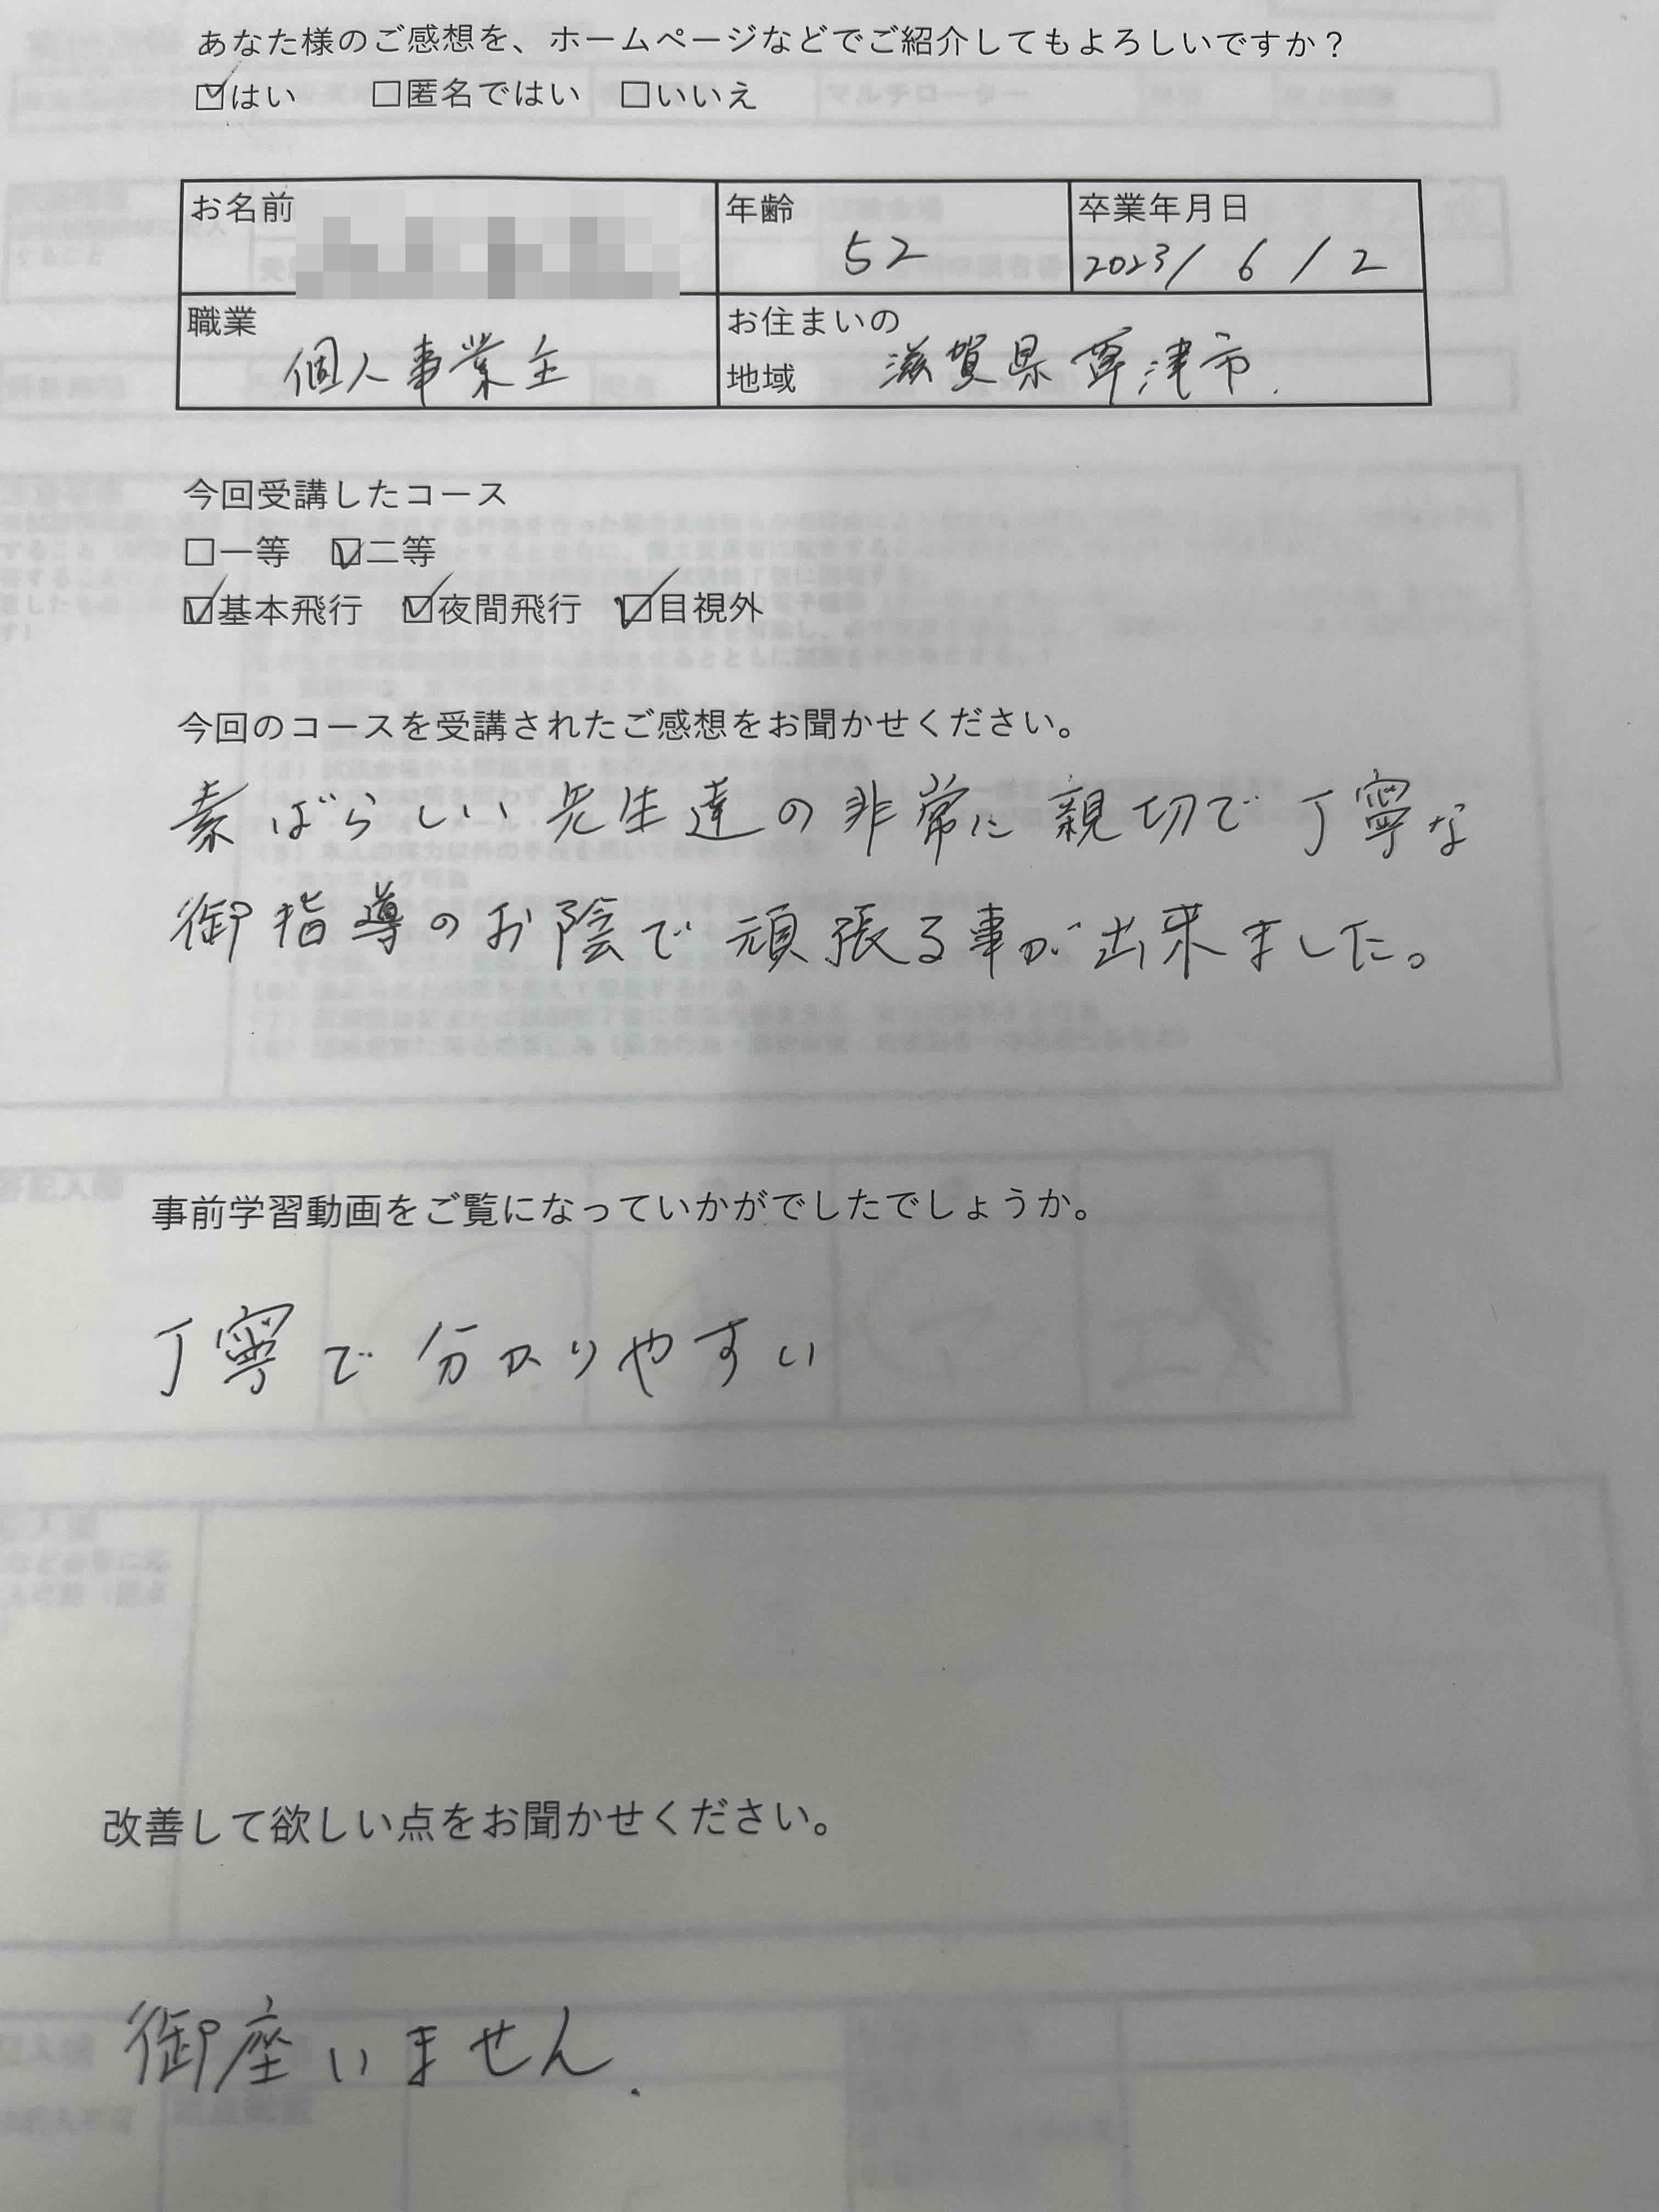 あなた様のご感想を、ホームページなどでご紹介してもよろしいですか？
☑はい □匿名ではい □いいえ
お名前
年齢
52
卒業年月日
2023/6/2
職業
個人事業主
お住まいの
地域
滋賀県草津市.
今回受講したコース
□一等 ☑二等
☑基本飛行 ☑夜間飛行 ☑目視外
今回のコースを受講されたご感想をお聞かせください。
素ばらしい先生達の非常に親切で丁寧な
御指導のお陰で頑張る事が出来ました。
事前学習動画をご覧になっていかがでしたでしょうか。
丁寧で分かりやすい
改善して欲しい点をお聞かせください。
御座いません.